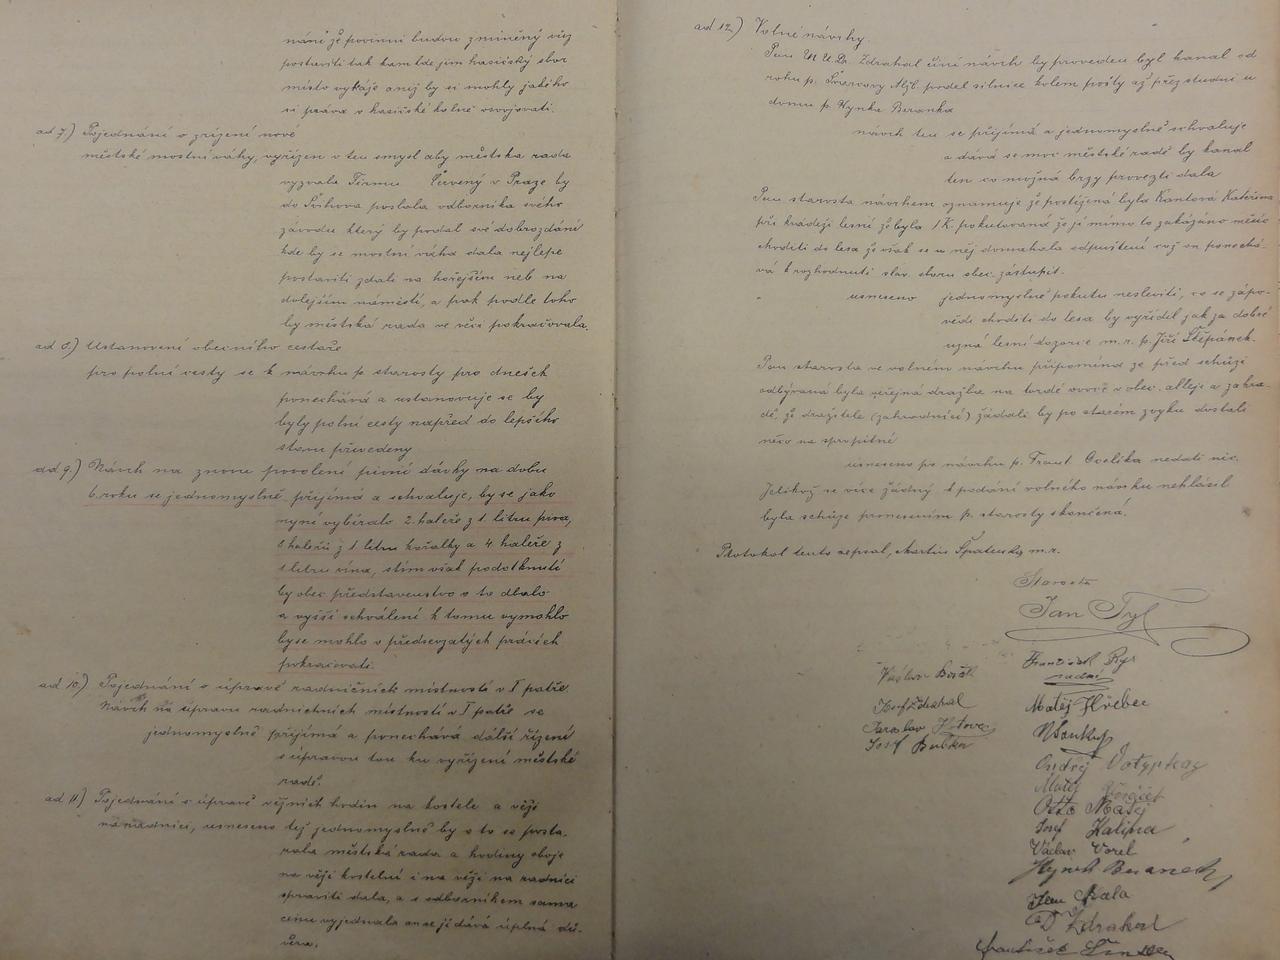 nání že povinni budou zmíněný vůz
postaviti tak kam kde jim hasičský sbor
místo vykáže aniž by si mohly jakého
si práva v hasičské kolně osvojovati.
ad 7.) Pojednání o zřízení nové
městské mostní váhy, vyřízen v ten smysl aby městská rada
vyzvala Firmu Červený v Praze by
do Švihova poslala odborníka svého
závodu který by podal své dobrozdání
kde by se mostní váha dala nejlépe
postaviti zdali na hořejším neb na
dolejším náměstí, a pak podle toho
by městská rada ve věci pokračovala.
ad 8.) Ustanovení obecního cestáře
pro polní cesty se k návrhu p. starosty pro dnešek
ponechává a ustanovuje se by
byly polní cesty napřed do lepšího
stavu přivedeny
ad 9.) Návrh na znovu povolení pivní dávky na dobu
6. roku se jednomyslně přijímá a schvaluje, by se jako
nyní vybíralo 2. haleře z 1. litru piva,
haleřů z 1 litru kořalky a 4. haleře z
1 litru vína, s tím však podotknutí
by obec. představenstvo o to dbalo
a vyšší schválení k tomu vymohlo
by se mohlo v předsevzatých pracích
pokračovati.
ad 10.) Pojednání o úpravě radničních místností v I patře.
Návrh na úpravu radničních místností v I patře se
jednomyslně přijímá a ponechává další řízení
s úpravou tou ku vyřízení městské
radě.
ad 11.) Pojednání o úpravě věžních hodin na kostele a věži
na radnici, usneseno též jednomyslně by o to se posta-
rala městská rada a hodiny oboje
na věži kostelní i na věži na radnici
spraviti dala, a s odborníkem sama
cenu vyjednala an se jí dává úplná dů-
věra.
ad 12.) Volné návrhy.
Pan M.U.Dr. Zdrahal činí návrh by proveden byl kanál od
rohu p. Švarcovy Alžb. podél silnice kolem pošty až přes studni u
domu p. Hynka Beránka
návrh ten se přijímá a jednomyslně schvaluje
a dává se moc městské radě by kanál
ten co možná brzy provézti dala
Pan starosta návrhem oznamuje že postižená byla Kantová Kateřina
při krádeži lesní že byla 1 K. pokutovaná že jí mimo to zakázáno měsíc
choditi do lesa že však se u něj domáhala odpuštění což on ponechá-
vá k rozhodnutí sláv. sboru obec. zástupit.
usneseno jednomyslně pokutu nesleviti, co se zápo-
vědi choditi do lesa by vyřídil jak za dobré
uzná lesní dozorce m. r. p. Jiří Štěpánek.
Pan starosta ve volném návrhu připomíná že před schůzí
odbývaná byla veřejná dražba na tvrdé ovoce v obec. alleje a zahra-
dě, že dražitelé (zahradníci) žádali by po starém zvyku dostali
něco na spropitné
usneseno po návrhu p. Frant. nedati nic.
Jelikož se více žádný k podání volného návrhu nehlásil
byla schůze pronesením p. starosty skončená.
Protokol tento sepsal, Martin m.r.
Starosta
Jan Tyl
František
radní
Václav
Josef Zdrahal
Matěj Hřebec
Jaroslav
Josef Bublín
Ondřej Votýpka
Matěj
Otto Matěj
Josef Kalina
Václav Vorel
Hynek Beránek
Jan
Dr Zdrahal
František